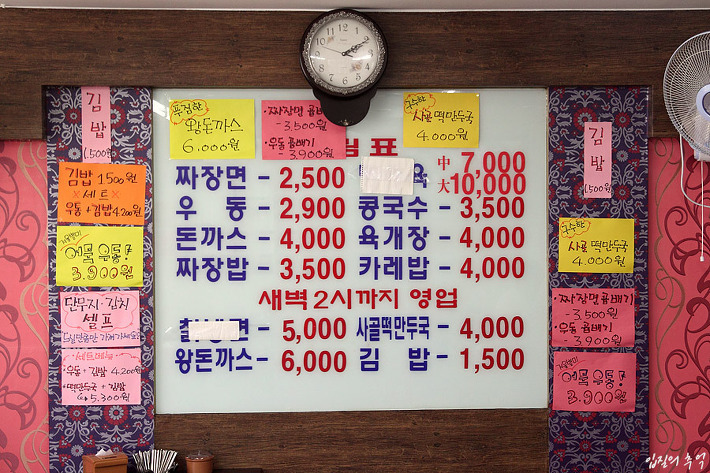 김밥
1,500
김밥 1500원
×세트×
우동+김밥 4,200원
겨울별미
어묵우동!
3,900원
단무지·김치
셀프
세트메뉴
·우동+김밥 4,200원
·떡만두국+김밥
5,300원
푸짐한
왕돈까스
6,000원
·짜장면 곱배기
-3,500원
·우동 곱배기
-3,900원
구수한
사골 떡만두국
4,000원
표
짜장면 - 2,500
우동 - 2,900
돈까스 - 4,000
짜장밥 - 3,500
中 7,000
大 10,000
콩국수 - 3,500
육개장 - 4,000
카레밥 - 4,000
새벽 2시까지 영업
면 - 5,000
사골떡만두국 - 4,000
왕돈까스 - 6,000
김밥 - 1,500
김밥
1,500원
구수한
사골 떡만두국
4,000원
·짜장면 곱배기
-3,500원
·우동 곱배기
-3,900원
겨울별미
어묵우동!
3,900원
입질의 추억